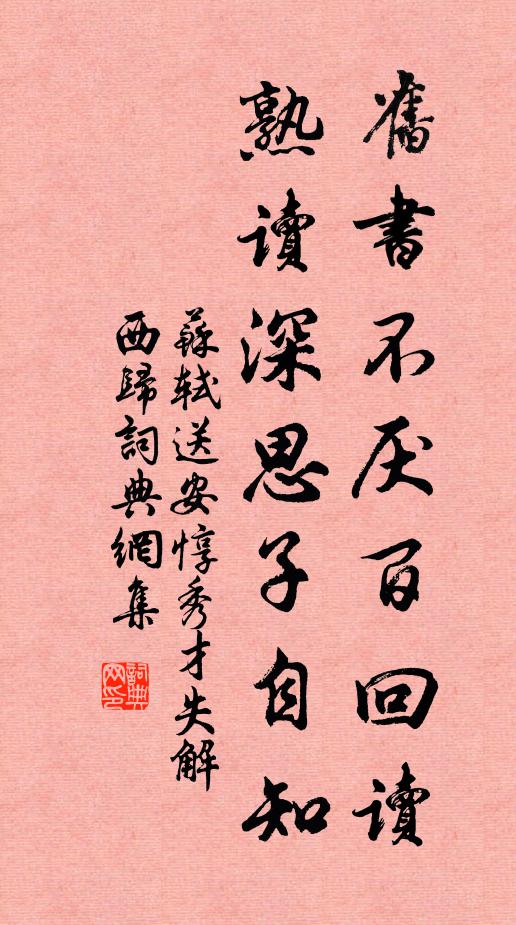 舊書不厌百回讀
熟讀深思子自知
蘇軾送安惇秀才失解
西歸詞典網集
詞典
网印